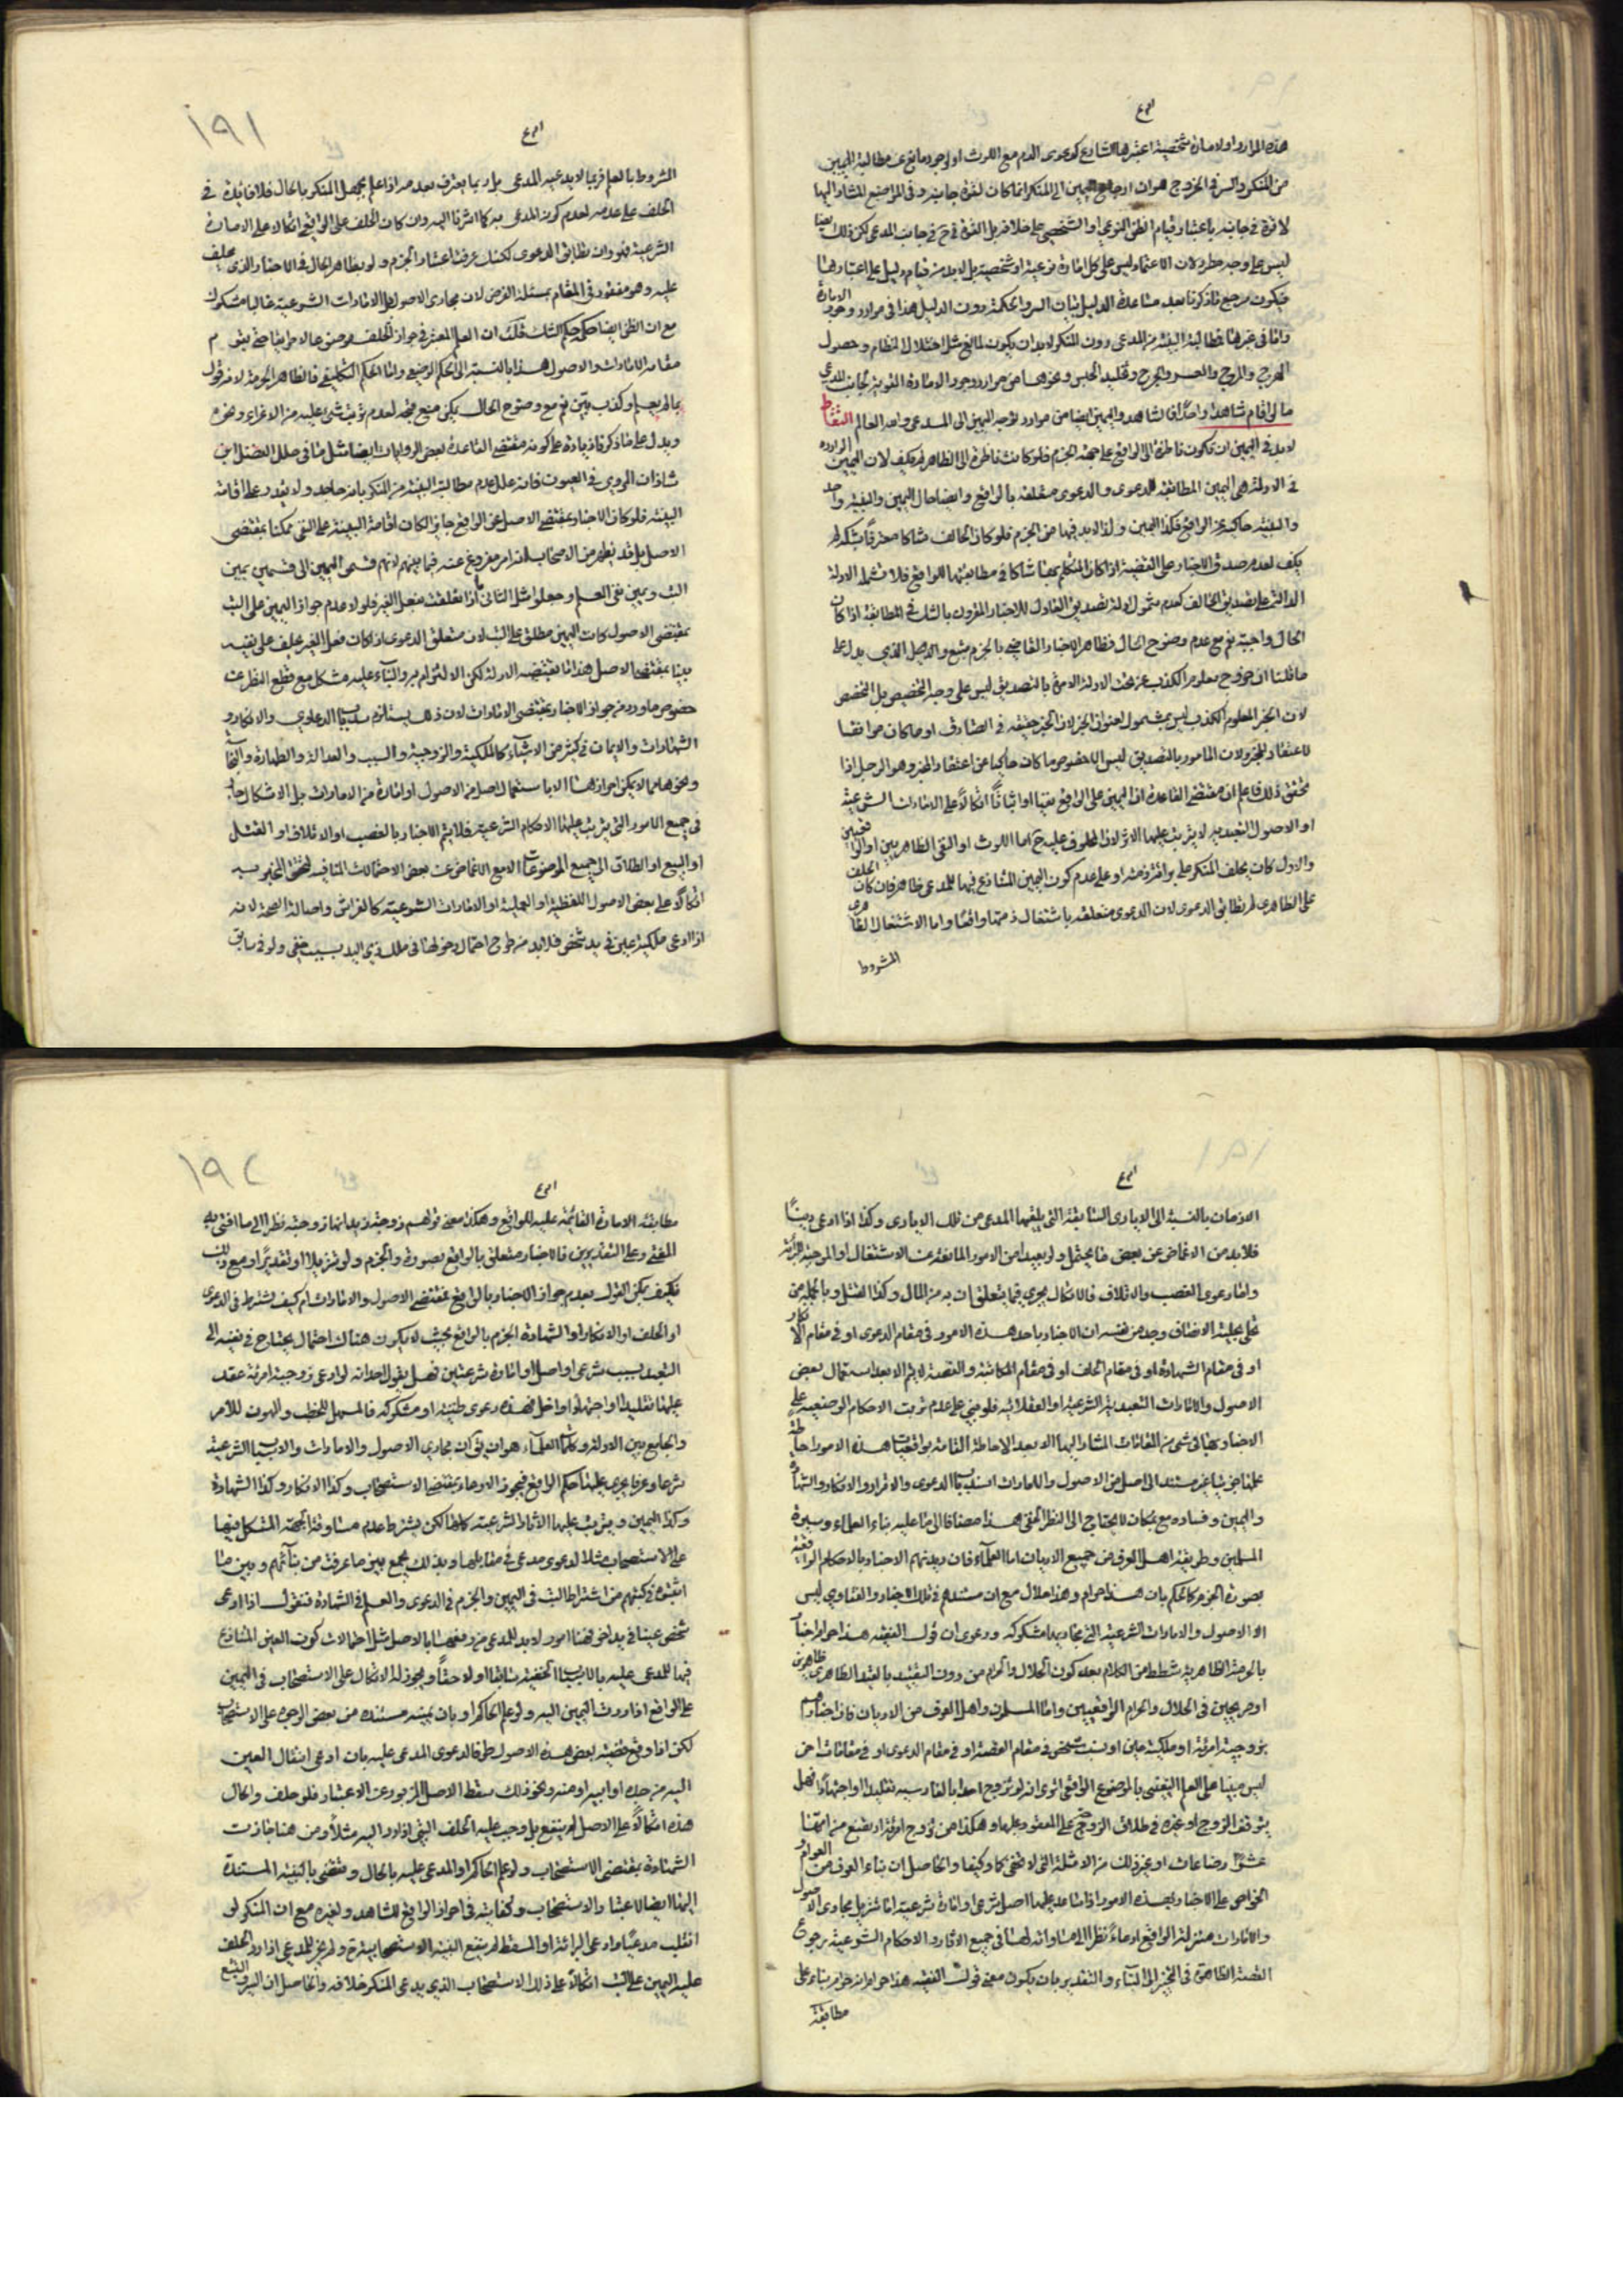 هذه الموارد اولامارة شخصية اعتبرها الشارع كدعوى الدم مع اللوث او لوجود مانع عن مطالبة اليمين
من المنكر والسر في الخروج هو ان ارجاع اليمين الى المنكر انما كان لقوة جانبه وفي المواضع المشار اليها
لا قوة في جانبه باعتبار قيام الظن النوعي او الشخصي على خلافه بل القوة في ح في جانب المدعي لكن ذلك ايضا
ليس على وجه مطرد لان الاعتماد ليس على كل امارة نوعية او شخصية بل لابد من قيام دليل على اعتبارها
فيكون مرجع ما ذكرنا بعد مساعدة الدليل بيان السر والحكمة دون الدليل هذا في موارد وجود الامارة
واما في غيرها فمطالبة البينة من المدعي دون المنكر لابد ان يكون لمانع مثل اختلال النظام وحصول
الهرج والمرج والعسر والحرج وتخليد الحبس ونحوها من موارد وجود الامارة القوية لجانب المدعي
ما لو اقام شاهدا واحدا فالشاهد واليمين ايضا من موارد توجه اليمين الى المدعي والله العالم
لابد في اليمين ان تكون ناظرة الى الواقع على جهة الجزم فلو كانت ناظرة الى الظاهر لم يكف لان اليمين الواردة
في الادلة هي اليمين المطابقة للدعوى والدعوى متعلقة بالواقع وايضا حال اليمين والبينة واحد
والبينة حاكية عن الواقع فكذا اليمين ولذا لابد فيها من الجزم فلو كان الحالف شاكا معترفا بشكه لم
يكف لعدم صدق الاخبار على القضية اذا كان المتكلم بها شاكا في مطابقتها للواقع فلا تشمله الادلة
الدالة على تصديق الحالف كعدم شمول ادلة تصديق العادل للاخبار المقرون بالشك في المطابقة اذا كان
الحال واجبة نعم مع عدم وضوح الحال فظاهر الاخبار القاضي بالجزم يتبع والدليل الذي يدل على
ما قلنا ان خروج معلوم الكذب عن تحت الادلة الامرة بالتصديق ليس على وجه التخصيص بل التخصص
لان الخبر المعلوم الكذب ليس بمشمول لعنوان الخبر لان الخبر حقيقة في الصادق او ما كان موافقا
لاعتقاد المخبر ولان المأمور بالتصديق ليس الا خصوص ما كان حاكيا عن اعتقاد المخبر وهو الرجل اذا
تحقق ذلك فاعلم ان مقتضى القاعدة ان اليمين على الواقع نفيا او اثباتا اتكالا على الامارات الشرعية
او الاصول التعبدية لا يترتب عليها الاثر لان المحلوف عليه ح اما اللوث او النفي الظاهريين او الواقعيين
والاول كان يحلف المنكر على براءة ذمته او على عدم كون العين المتنازع فيها للمدعي ظاهرا فان كان الحلف
على الظاهري لم تطابق الدعوى لان الدعوى متعلقة باشتغال ذمته واقعا واما الاشتغال الظاهري
المشروط
١٩١
المشروط بالعلم فربما لا يدعيه المدعي بل ربما يعترف بعدمه اذا علم بجهل المنكر بالحال فلا فائدة في
الحلف على عدمه لعدم كون المدعى به كما اشرنا اليه وان كان الحلف على الواقع اتكالا على الامارة
الشرعية فهو وان طابق الدعوى لكنك عرفت اعتبار الجزم ولو بظاهر الحال في الاخبار الذي يحلف
عليه وهو مفقود في المقام بمسئلة الفرض لان مجاري الاصول بل الامارات الشرعية غالبا مشكوك
مع ان الظن ايضا حكمه حكم الشك قلت ان العلم المعتبر في جواز الحلف هو
مقامه الامارات والاصول هذا بالنسبة الى الحكم الوضعي واما الحكم التكليفي فالظاهر الحرمة لانه قول
بما لا يعلم او كذب بين نعم مع وضوح الحال يمكن منع قبحه لعدم ترتب شيء عليه من الاغراء ونحوه
ويدل على ما ذكرنا زيادة على كونه مقتضى القاعدة بعض الروايات ايضا مثل ما في علل الفضل ابن
شاذان المروي في العيون فانه علل عدم مطالبة البينة من المنكر بانه جاحد ولا يقدر على اقامة
البينة فلو كان الاخبار بمقتضى الاصل عن الواقع جايزا لكان اقامة البينة على النفي ممكنا بمقتضى
الاصل بل قد يظهر من الاصحاب انه امر مفروغ عنه فيما بينهم لانهم قسموا اليمين الى قسمين يمين
البت ويمين نفي العلم وجعلوا مثل الثاني ما اذا تعلقت بفعل الغير فلولا عدم جواز اليمين على البت
بمقتضى الاصول كانت اليمين مطلقا على البت لان متعلق الدعوى اذا كان فعل الغير يحلف على نفيه
بتا بمقتضى الاصل هذا ما يقتضيه الادلة لكن الالتزام به والبناء عليه مشكل مع قطع النظر عن
خصوص ما ورد من جواز الاخبار بمقتضى الامارات لان ذلك يستلزم سد باب الدعاوي والانكار و
الشهادات والايمان في كثير من الاشياء كالملكية والزوجية والنسب والعدالة والطهارة والنجاسة
ونحوها مما لا يمكن احرازها الا باستعمال اصل من الاصول او امارة من الامارات بل الاشكال جار
في جميع الامور التي يترتب عليها الاحكام الشرعية فلا يتم الاخبار بالغصب او الاتلاف او القتل
او البيع او الطلاق الى جميع الموضوعات الا مع الاغماض عن بعض الاحتمالات المنافية لتحقق المخبر به
اتكالا على بعض الاصول اللفظية او العملية او الامارات الشرعية كالفراش واصالة الصحة لانه
اذا ادعى ملكية عين في يد شخص فلابد من طرح احتمال دخولها في ملك ذي اليد بسبب خفي ولو في سابق
الازمان بالنسبة الى الايادي السابقة التي يتلقيها المدعي من تلك الايادي وكذا اذا ادعى دينا
فلابد من الاغماض عن بعض ما يحتمل ولو بعيدا من الامور المانعة عن الاشتغال او الموجبة للبرائة
واما دعوى الغصب والاتلاف فالاشكال يجري فيما يتعلقان به من المال وكذا القتل وبالجملة من
تحلى بحلية الانصاف وجد من نفسه ان الاخبار باحد هذه الامور في مقام الدعوى او في مقام الانكار
او في مقام الشهادة او في مقام الحلف او في مقام الحكاية والقصة لا يتم الا بعد استعمال بعض
الاصول والامارات التعبدية الشرعية او العقلائية فلو بني على عدم ترتب الاحكام الوضعية على
الاخبار بها في شيء من المقامات المشار اليها الا بعد الاحاطة التامة بواقعيات هذه الامور احاطة
علما ضروريا غير مستند الى اصل من الاصول والامارات انسد باب الدعوى والاقرار والانكار والشهادة
واليمين وفساده مع بمكان لا يحتاج الى النظر الدقيق هذا مضافا الى ما عليه بناء العلماء وسيرة
المسلمين وطريقة اهل العرف من جميع الاديان اما العلماء فان ديدنهم الاخبار بالاحكام الواقعية
بصورة الجزم كالحكم بان هذا حرام وهذا حلال مع ان مستندهم في تلك الاخبار والفتاوي ليس
الا الاصول والامارات الشرعية التي مجاريها مشكوكة ودعوى ان قول الفقيه هذا حرام اخبار
بالحرمة الظاهرية شطط من الكلام بعد كون الحلال والحرام من دون التقييد بالقيد الظاهري ظاهرين
او صريحين في الحلال والحرام الواقعيين واما المسلمون واهل العرف من الاديان فان اخبارهم
بزوجية امرئة او ملكية عين او نسب شخص في مقام القصة او في مقام الدعوى او في مقامات اخر
ليس مبنيا على العلم اليقيني بالموضوع الواقعي اترى انه لو تزوج احد بالفارسية تقليدا او اجتهادا فهل
يتوقف الزوج او غيره في طلاق الزوجة على المعقود عليها وهكذا من تزوج امرئة ارتضع من امها
عشر رضعات او غير ذلك من الامثلة التي لا تخفى كما وكيفا والحاصل ان بناء العرف من العوام و
الخواص على الاخبار بهذه الامور اذا ساعد عليها اصل شرعي او امارة شرعية اما تنزيل مجاري الاصول
والامارات منزلة الواقع ادعاء نظرا الى مساواته لها في جميع الاثار والاحكام الشرعية برجوع
القضية الظاهرة في التخيير الى البناء والتقدير بان يكون معنى قول الفقيه هذا حرام انه حرام بناء على
مطابقة
١٩٢
مطابقة الامارة القائمة عليه للواقع وهكذا معنى قولهم زوجة زيد انها زوجته نظرا الى ما افتى به
المفتي وعلى التقديرين فالاخبار متعلق بالواقع بصورة الجزم ولو تنزيلا او تقديرا ومع ذلك
فكيف يمكن القول بعدم جواز الاخبار بالواقع بمقتضى الاصول والامارات ام كيف يشترط في الدعوى
او الحلف او الانكار او الشهادة الجزم بالواقع بحيث لا يكون هناك احتمال يحتاج في نفيه الى
التعبد بسبب شرعي او اصل او امارة شرعيتين فهل يقول احد انه لو ادعى زوجية امرئة عقد
عليها تقليدا او اجتهادا فهذه دعوى ظنية او مشكوكة فالسهل للخطب والهون للامر
والجامع بين الادلة وكلمات العلماء هو ان يق ان مجاري الاصول والامارات والاسباب الشرعية
شرعا وعرفا يجري عليها حكم الواقع فيجوز الادعاء بمقتضى الاستصحاب وكذا الانكار وكذا الشهادة
وكذا اليمين ويترتب عليها الاثار الشرعية كلها لكن يشترط عدم مساوقة الجهة المشكل فيها
على الاستصحاب مثلا لدعوى مدعي في مقابلها وبذلك يجمع بين ما عرفت من بنائهم وبين ما
اثبتوه في كتبهم من اشتراط البت في اليمين والجزم في الدعوى والعلم في الشهادة فنقول اذا ادعى
شخص عينا في يد اخر فهنا امور لابد للمدعي من دفعها بالاصل مثل احتمالات كون العين المتنازع
فيها للمدعى عليه بالاسباب الخفية سابقا او لاحقا ويجوز له الاتكال على الاستصحاب في اليمين
على الواقع اذا ردت اليمين اليه ولو علم الحاكم او بان يمينه مستندة من بعض الوجوه على الاستصحاب
لكن اذا وقع قضية بعض هذه الاصول طرفا لدعوى المدعى عليه بان ادعى انتقال العين
اليه من جده او ابيه او منه ونحو ذلك سقط الاصل المزبور عن الاعتبار فلو حلف والحال
هذه اتكالا على الاصل لم ينفع بل وجب عليه الحلف البتي اذا رد اليه مثلا ومن هنا جازت
الشهادة بمقتضى الاستصحاب ولو علم الحاكم او المدعى عليه بالحال ويقضي بالبينة المستندة
اليها ايضا لاعتبار الاستصحاب وكفايته في احراز الواقع للشاهد ولغيره مع ان المنكر لو
انقلب مدعيا وادعى البرائة او المسقط لم ينفع البينة الاستصحابية ولم يجز للمدعي اذا رد الحلف
عليه اليمين على البت اتكالا على ذلك الاستصحاب الذي يدعي المنكر خلافه والحاصل ان السر